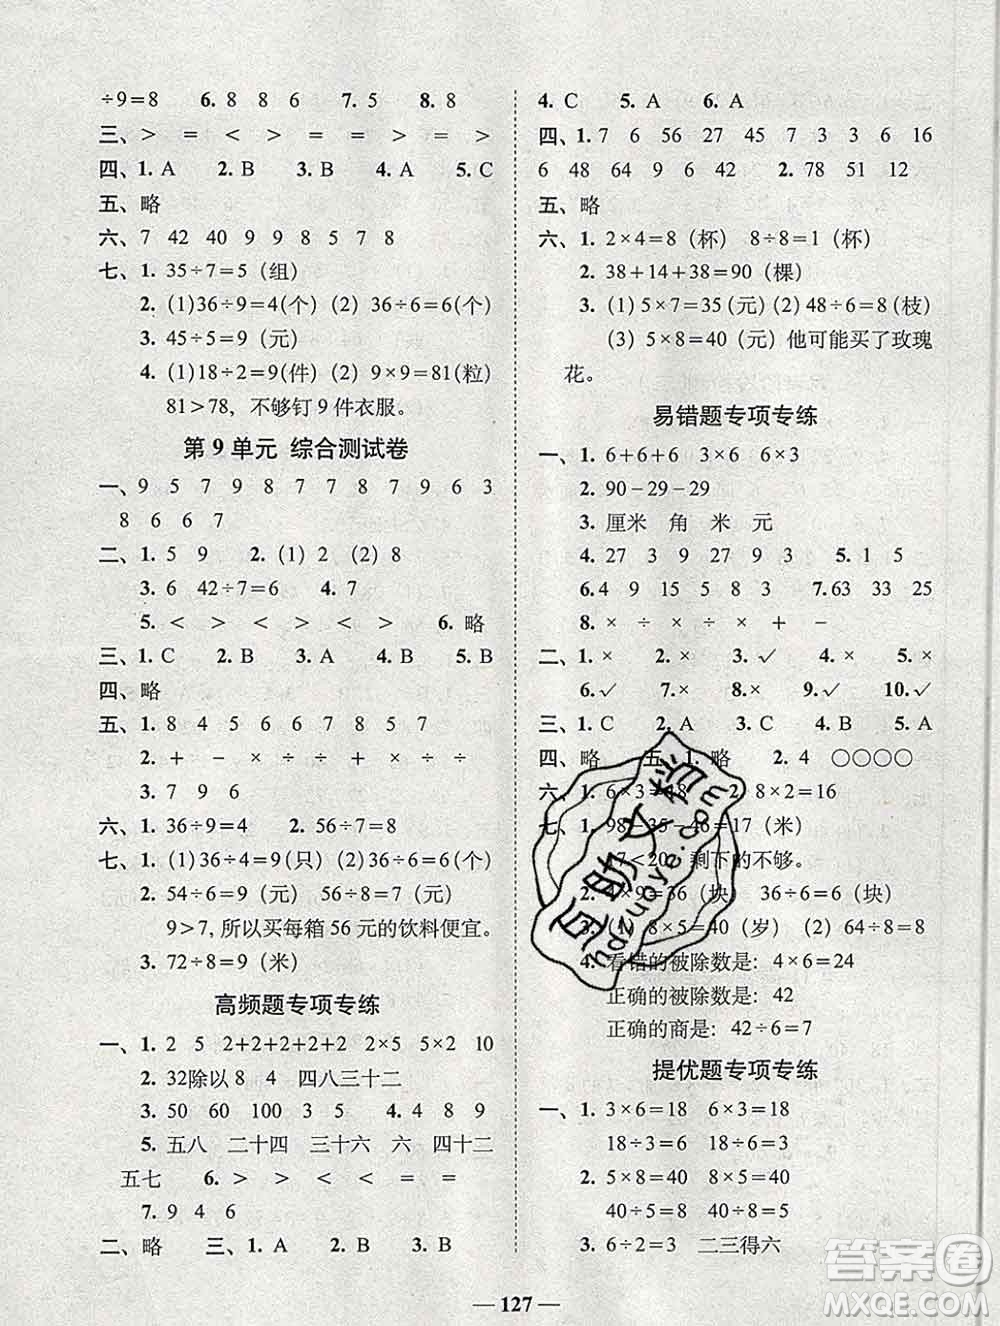 ÷9=8 6. 8 8 6 7. 5 8. 8
三、> = < > = = = >
四、1. A 2. B 3. B 4. A 5. C
五、略
六、7 42 40 9 9 8 5 7 8
七、1. 35÷7=5（组）
2. (1)36÷9=4(个) (2) 36÷6=6(个)
3. 45÷5=9（元）
4. (1)18÷2=9(件) (2) 9×9=81(粒)
81>78，不够钉 9 件衣服。
第 9 单元 综合测试卷
一、9 5 7 9 8 7 7 8 7 9 6 3
8 6 6 7
二、1. 5 9 2. (1) 2 (2) 8
3. 6 42÷7=6 4. 7
5. < > < > < > 6. 略
三、1. C 2. A 3. B 4. A 5. B
四、略
五、1. 8 4 5 6 6 7 8 5 7
2. + − × ÷ × ÷ ÷ +
3. 7 9 6
六、1. 36÷9=4 2. 56÷7=8
七、1. (1)36÷4=9(只) (2)36÷6=6(个)
2. 54÷6=9（元） 56÷8=7（元）
9>7, 所以买每箱 56 元的饮料便宜。
3. 72÷8=9（米）
高频题专项专练
一、1. 2 5 2+2+2+2+2 2×5 5×2 10
2. 32除以 8 4 四八三十二
3. 50 60 100 3 5 4. 4 8 9
5. 五八 二十四 三十六 六 四十二
五七 6. > > < < = =
7. 9 4 6
二、略 三、1. A 2. B 3. C
4. C 5. A 6. A
四、1. 7 6 56 27 45 7 3 3 6 16
6 48 64 9 6 42 2. 78 51 12
五、略
六、1. 2×4=8（杯） 8÷8=1（杯）
2. 38+14+38=90（棵）
3. (1) 5×7=35(元) (2) 48÷6=8(枝)
(3) 5×8=40（元）他可能买了玫瑰
花。
易错题专项专练
一、1. 6+6+6 3×6 6×3
2. 90−29−29
3. 厘米 角 米 元
4. 27 3 9 27 9 3 5. 1 5
6. 4 9 15 5 8 3 7. 63 33 25
8. − × ÷ × ÷ × + −
二、1. × 2. × 3. ✓ 4. × 5. ×
6. ✓ 7. × 8. × 9. ✓ 10. ✓
三、1. C 2. A 3. C 4. B 5. A
四、略 五、1. 略 2. 4 ○○○○
六、1. 6×3=18 2. 8×2=16
七、1. 98−35−46=17（米）
17<20, 剩下的不够。
2. 4×9=36（块） 36÷6=6（块）
3. (1) 8×5=40（岁） (2) 64÷8=8
4. 看错的被除数是：4×6=24
正确的被除数是：42
正确的商是：42÷6=7
提优题专项专练
一、1. 3×6=18 6×3=18
18÷3=6 18÷6=3
2. 5×8=40 8×5=40
40÷5=8 40÷8=5
3. 6÷2=3 二三得六
互助文档
hdzuoye.com
答案圈
MXQE.COM
— 127 —